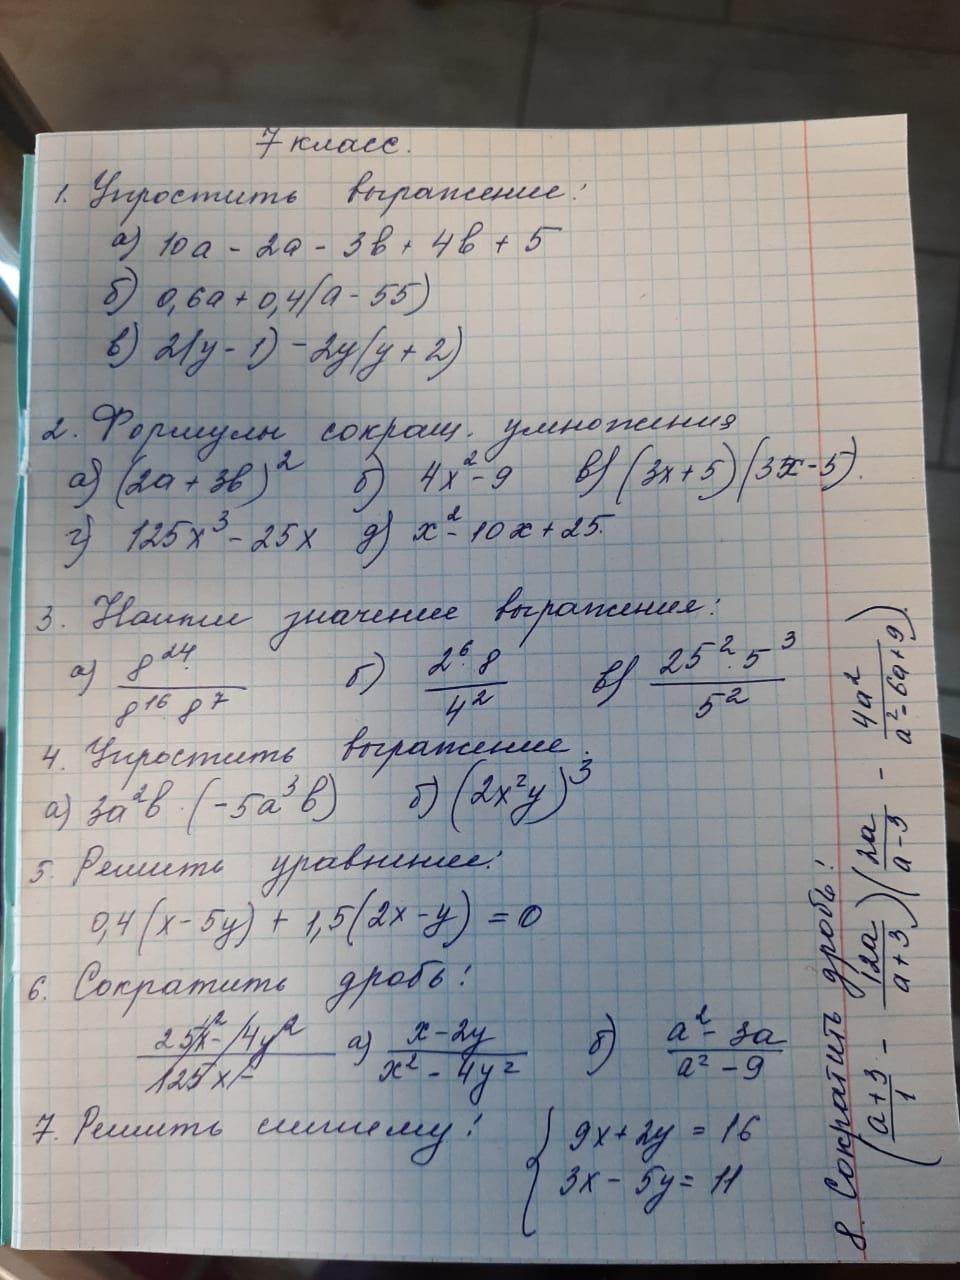 7 класс.
1. Упростить выражение:
а) 10a - 2a - 3b + 4b + 5
б) 0,6a + 0,4(a - 55)
в) 2(y - 1) - 2y(y + 2)
2. Формулы сокращ. умножения
а) (2a + 3b)² б) 4x² - 9 в) (3x + 5)(3x - 5).
г) 125x³ - 25x д) x² - 10x + 25.
3. Найти значение выражения:
а) 8²⁴ / 8¹⁶ · 8⁷ б) 2⁶ · 8 / 4² в) 25² · 5³ / 5²
4. Упростить выражение.
а) 3a²b · (-5a³b) б) (2x²y)³
5. Решить уравнение:
0,4(x - 5y) + 1,5(2x - y) = 0
6. Сократить дробь:
а) x - 2y / x² - 4y² б) a² - 3a / a² - 9
7. Решить систему: { 9x + 2y = 16
3x - 5y = 11
8. Сократить дробь:
(a + 3 / 1 - 12a / a + 3)(2a / a - 3 - 4a² / a² - 6a + 9).